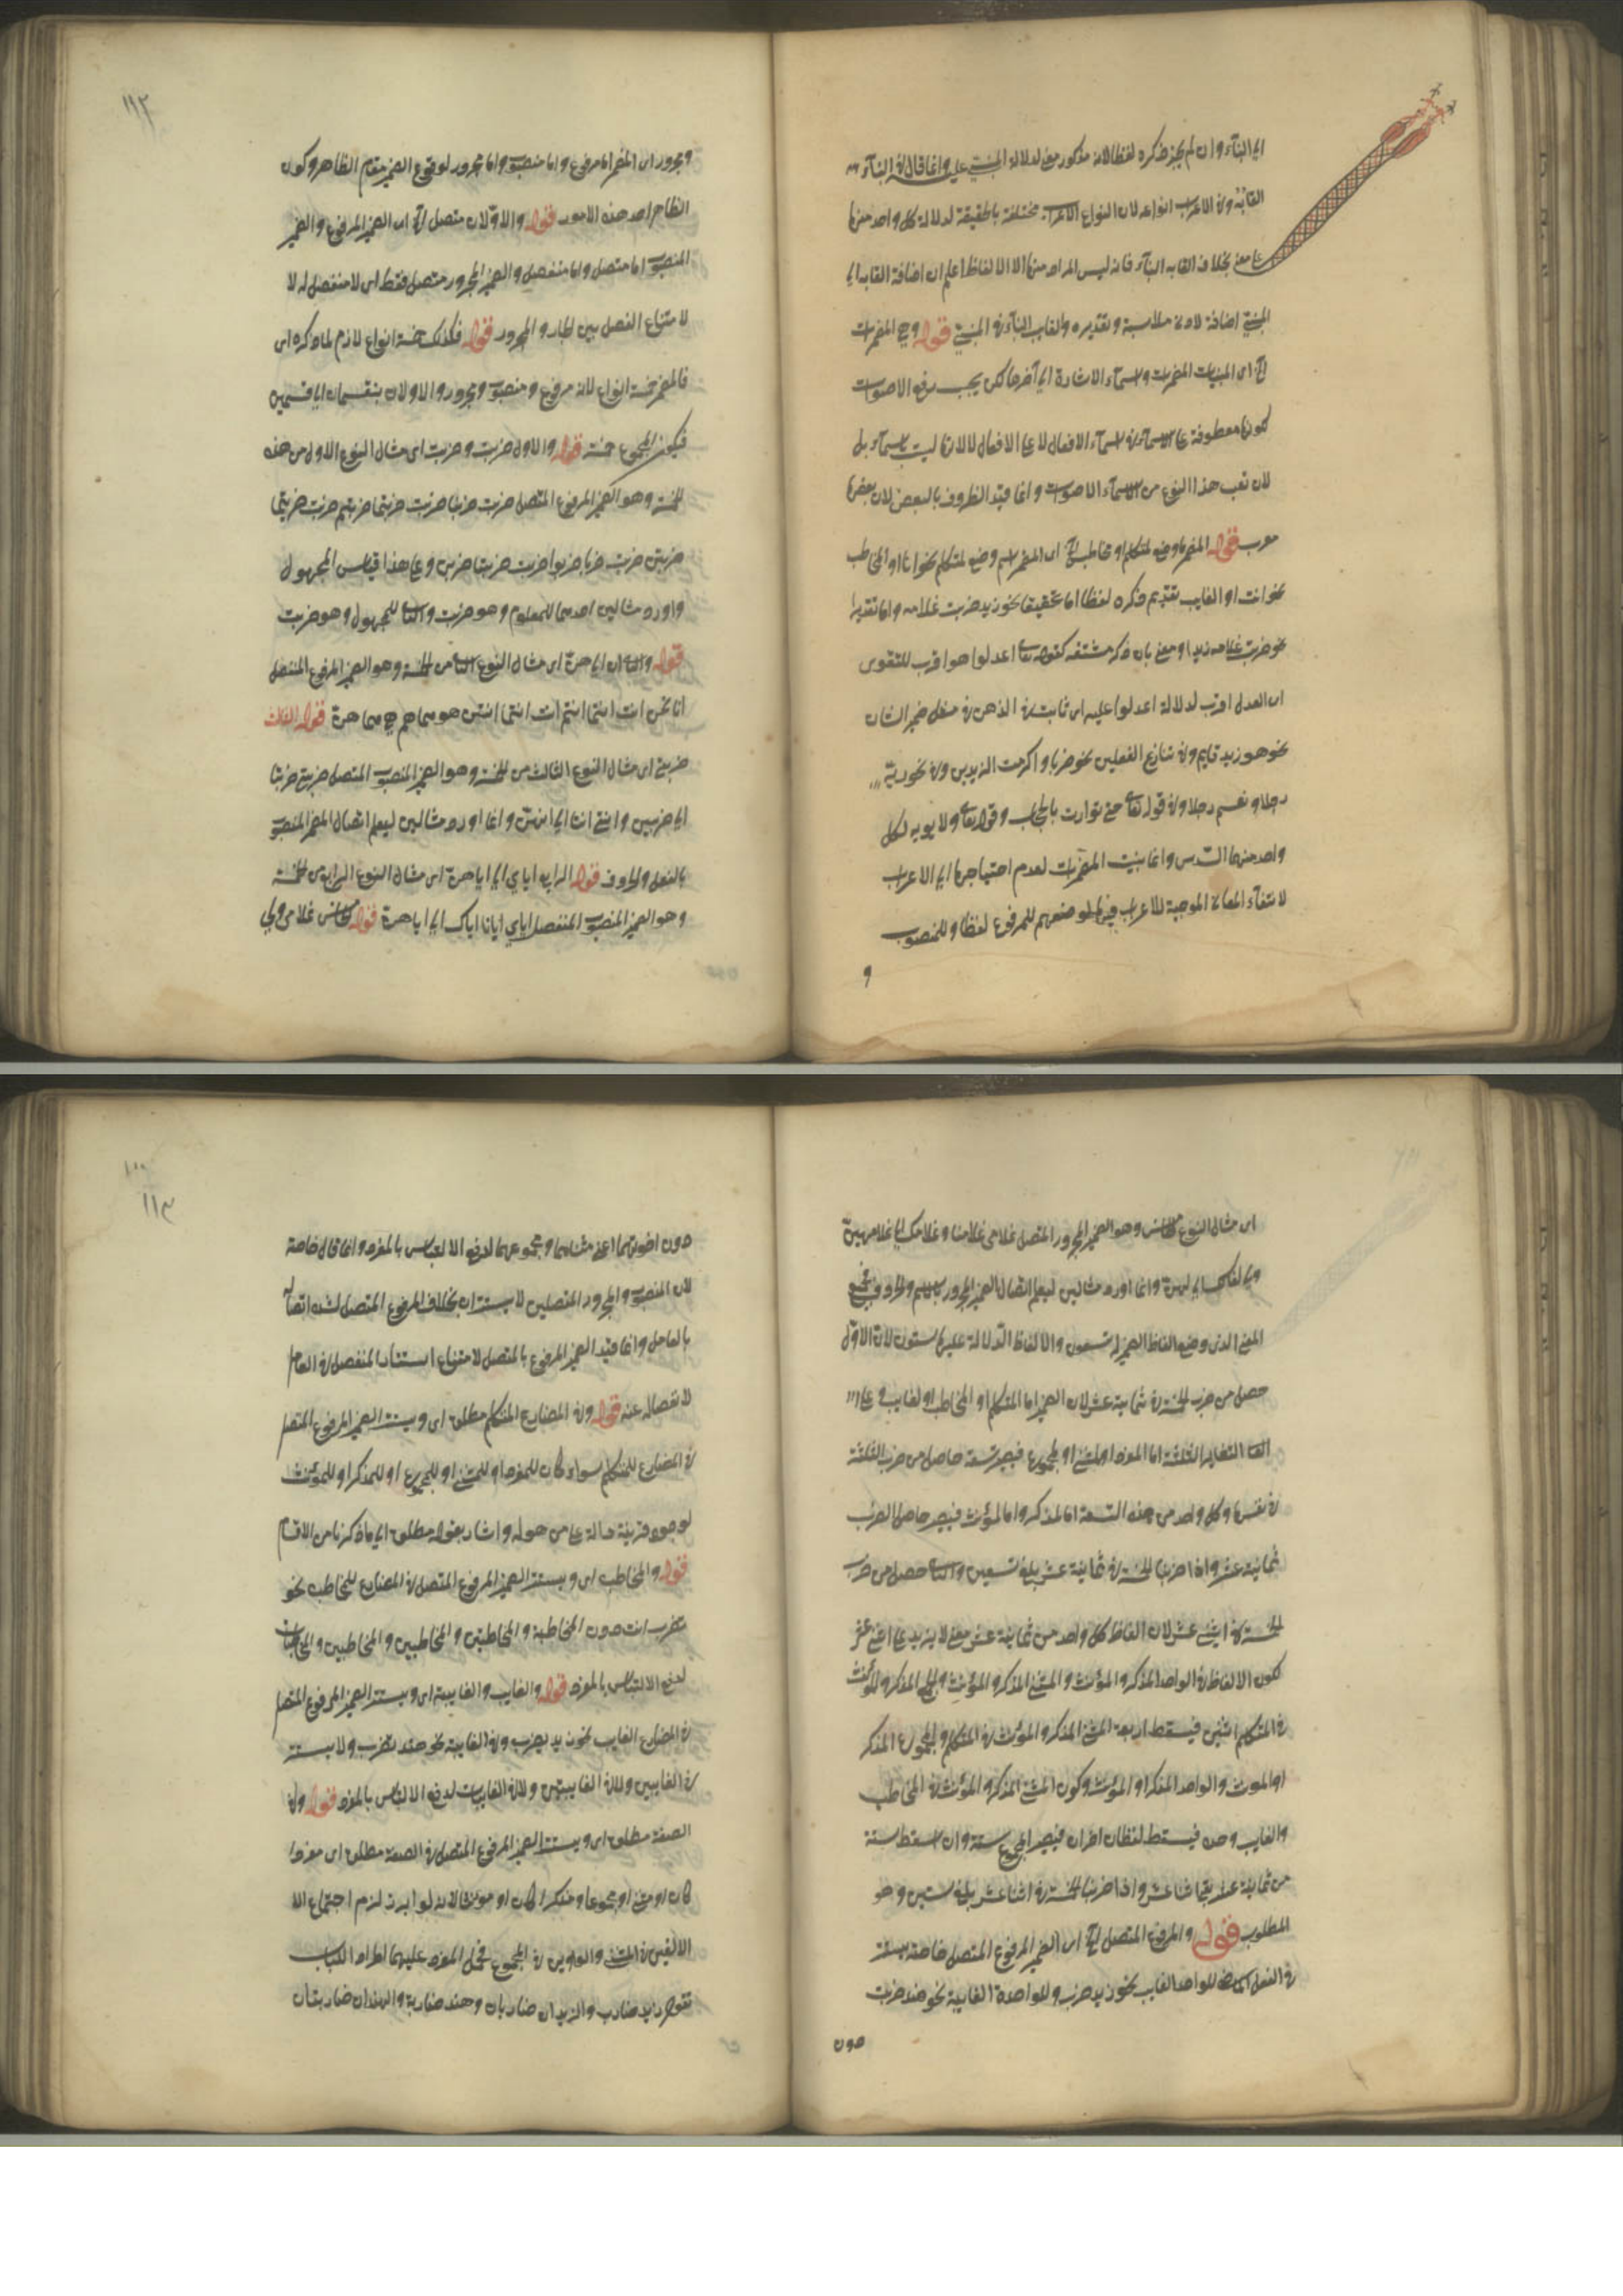 الى البناء وان لم يجز ذكره لفظا لانه مذكور معنى لدلالة المبنى عليه وانما قال في البناء
القابه وفي الاعراب انواعه لان انواع الاعراب مختلفة بالحقيقة لدلالة كل واحد منها
على معنى بخلاف القاب البناء فانه ليس المراد منها الا الالفاظ اعلم ان اضافة القاب الى
المبنى اضافة لادنى ملابسة وتقديره والقاب البناء في المبنى قوله وهي المضمرات
الخ اى المبنيات المضمرات واسماء الاشارة الى آخرها لكن يجب رفع الاصوات
لكونها معطوفة على الاسماء في اسماء الافعال لا على الافعال لا لانها ليست باسماء بل
لان لقب هذا النوع من الاسماء الاصوات وانما قيد الظروف بالبعض لان بعضها
معرب قوله المضمر ما وضع لمتكلم او مخاطب الخ اى المضمر اسم وضع لمتكلم نحو انا او المخاطب
نحو انت او الغايب تقديم ذكره لفظا اما تحقيقا نحو زيد ضربت غلامه واما تقديرا
نحو ضرب غلامه زيدا ومعنى بان ذكر مشتقه كقوله تعا اعدلوا هو اقرب للتقوى
اى العدل اقرب لدلالة اعدلوا عليه اى ثابت في الذهن في مثل ضمير الشان
نحو هو زيد قايم وفي تنازع الفعلين نحو ضربا واكرمت الزيدين وفي نحو ربه
رجلا ونعم رجلا وفي قوله تعا حتى توارت بالحجاب وقوله تعا ولابويه لكل
واحد منهما السدس وانما بنيت المضمرات لعدم احتياجها الى الاعراب
لانتفاء المعاني الموجبة للاعراب فيها لوضعهم للمرفوع لفظا وللمنصوب
و
١١٢
ومجرور اى المضمر اما مرفوع واما منصوب واما مجرور لوقوع الضمير مقام الظاهر وكون
الظاهر احد هذه الامور قوله والاولان متصل الخ اى الضمير المرفوع والضمير
المنصوب اما متصل واما منفصل والضمير المجرور متصل فقط اى لا منفصل له لا
لامتناع الفصل بين الجار والمجرور قوله فكذلك خمسة انواع لازم لما ذكره اى
فالمضمر خمسة انواع لانه مرفوع ومنصوب ومجرور والاولان ينقسمان الى قسمين
فيكون المجموع خمسة قوله والاول ضربت وضربت اى مثال النوع الاول من هذه
الخمسة وهو الضمير المرفوع المتصل ضربت ضربنا ضربت ضربتما ضربتم ضربت ضربتما
ضربتن ضرب ضربا ضربوا ضربت ضربتا ضربن وعلى هذا قياس المجهول
واورد مثالين احدهما للمعلوم وهو ضربت والثاني للمجهول وهو ضربت
قوله والثاني انا الى هن اى مثال النوع الثاني من الخمسة وهو الضمير المرفوع المنفصل
انا نحن انت انتما انتم انت انتما انتن هو هما هم هي هما هن قوله الثالث
ضربني اى مثال النوع الثالث من الخمسة وهو الضمير المنصوب المتصل ضربني ضربنا
الى ضربهن وانني اننا الى انهن وانما اورد مثالين ليعلم اتصال الضمير المنصوب
بالفعل والحروف قوله الرابع اياي الى اياهن اى مثال النوع الرابع من الخمسة
وهو الضمير المنصوب المنفصل اياي ايانا اياك الى اياهن قوله الخامس غلامى ولي
اى مثال النوع الخامس وهو الضمير المجرور المتصل غلامى غلامنا وغلامك الى غلامهن
ولي لنا لك الى لهن وانما اورد مثالين ليعلم اتصال الضمير المجرور بالاسم والحروف
المعنى الذى وضع الفاظ الضمير له تسعون والالفاظ الدالة عليها ستون لان الاول
حصل من ضرب الخمسة في ثمانية عشر لان الضمير اما المتكلم او المخاطب او لغايب وعلى
التقادير الثلثة اما المفرد او المثنى او المجموع فيصير تسعة حاصل من ضرب الثلثة
في نفسها وكل واحد من هذه التسعة اما لمذكر واما لمؤنث فيصير حاصل الضرب
ثمانية عشر واذا ضربنا الخمسة في ثمانية عشر يبلغ تسعين والثاني حصل من ضرب
الخمسة في اثنى عشر لان الفاظ كل واحد من ثمانية عشر معنى لا يزيد على اثنى عشر
لكون الالفاظ في الواحد المذكر والمؤنث والمثنى المذكر والمؤنث والجمع المذكر والمؤنث
في المتكلم اثنين فيسقط اربعة المثنى المذكر والمؤنث في المتكلم والمجموع المذكر
او المونث والواحد المذكر او المؤنث وكون المثنى المذكر والمؤنث في المخاطب
والغايب وحده فيسقط لفظان اخران فيصير المجموع ستة وان اسقط ستة
من ثمانية عشر بقى اثنا عشر واذا ضربنا الخمسة في اثنا عشر يبلغ ستين وهو
المطلوب قوله والمرفوع المتصل الخ اى الضمير المرفوع المتصل خاصة يستتر
في الفعل الماضى للواحد الغايب نحو زيد ضرب وللواحدة الغايبة نحو هند ضربت
دون
١١٣
دون اخواتهما اعنى مثناهما ومجموعهما لدفع الالتباس بالمفرد وانما قال خاصة
لان المنصوب والمجرور المتصلين لا يستتران بخلاف المرفوع المتصل لشدة اتصاله
بالعامل وانما قيد الضمير المرفوع بالمتصل لامتناع استتار المنفصل في العامل
لانفصاله عنه قوله وفي المضارع المتكلم مطلق اى ويستتر الضمير المرفوع المتصل
في المضارع للمتكلم سواء كان للمفرد او للمثنى او للمجموع او للمذكر او للمؤنث
لوجود قرينة دالة على من هو له واشار بقوله مطلق الى ما ذكرنا من الاقسام
قوله والمخاطب اى ويستتر الضمير المرفوع المتصل في المضارع للمخاطب نحو
تضرب انت دون المخاطبة والمخاطبتين والمخاطبين والمخاطبين والمخاطبات
لدفع الالتباس بالمفرد قوله والغايب والغايبة اى ويستتر الضمير المرفوع المتصل
في المضارع الغايب نحو زيد يضرب وفي الغايبة نحو هند تضرب ولا يستتر
في الغايبين ولا في الغايبتين ولا في الغايبات لدفع الالتباس بالمفرد قوله وفي
الصفة مطلق اى ويستتر الضمير المرفوع المتصل في الصفة مطلق اى مفردا
كان او مثنى او مجموعا ومذكرا كان او مؤنثا لانه لو ابرز لزم اجتماع الا
الالفين في المثنى والواوين في المجموع فحمل المفرد عليهما اطراد الباب
تقول زيد ضارب والزيدان ضاربان وهند ضاربة والهندان ضاربتان